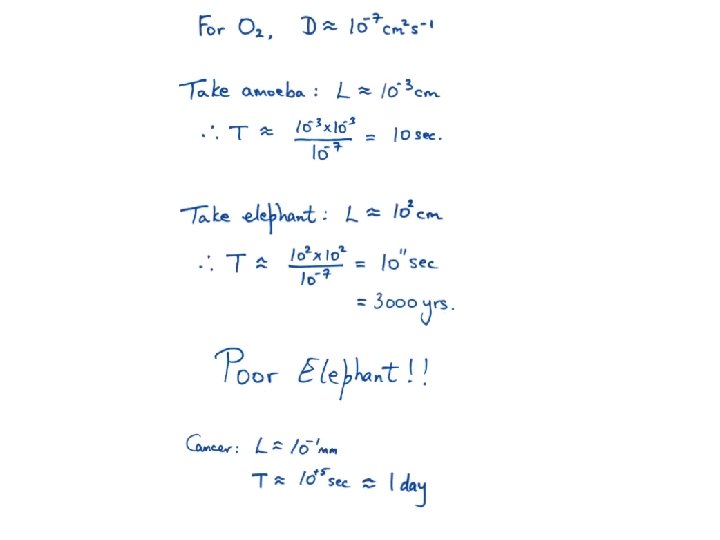 For O₂, D ≈ 10⁻⁷ cm²s⁻¹
Take amoeba: L ≈ 10⁻³ cm
∴ T ≈ 10⁻³ × 10⁻³ / 10⁻⁷ = 10 sec.
Take elephant: L ≈ 10² cm
∴ T ≈ 10² × 10² / 10⁻⁷ = 10¹¹ sec
= 3000 yrs.
Poor Elephant!!
Cancer: L ≈ 10⁻¹ mm
T ≈ 10⁺⁵ sec ≈ 1 day